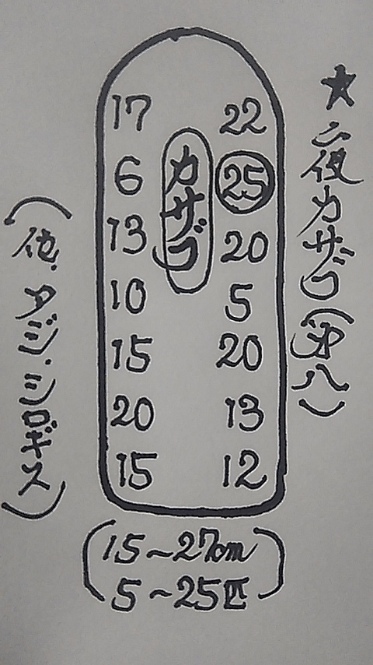 ★二夜カサゴ(沖八)
カサゴ
17 22
6 25
13 20
10 5
15 20
20 13
15 12
(15～27cm
5～25匹)
(他、タジ、シロギス)